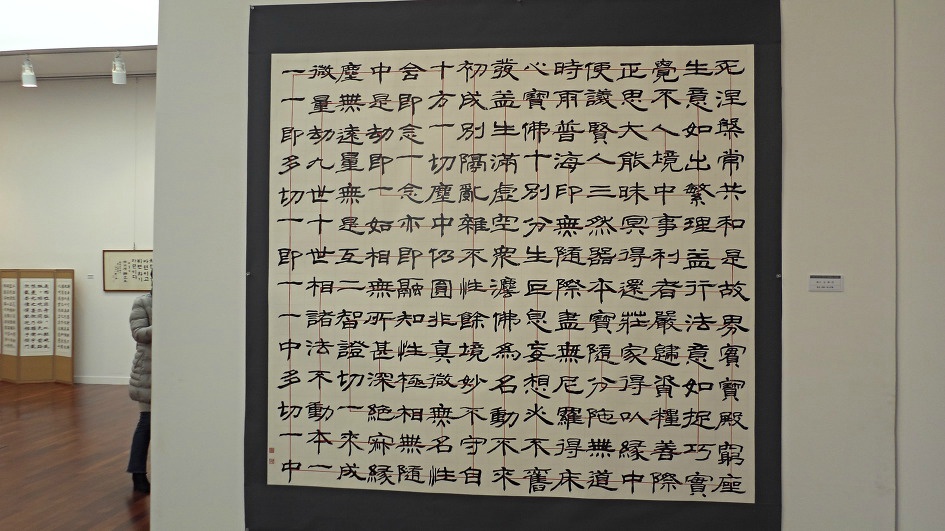 死涅槃常共和是故界實寶殿窮座
生意如出繁理益行法意如捉巧實
覺不人境中事利者嚴歸資糧善際
正思大能昧冥得還莊家得以緣中
便議賢人三然器本寶隨分陀無道
時雨普海印無隨際盡無尼羅得床
心寶佛十別分生叵息妄想必不舊
發益生滿虛空眾灋佛為名動不來
初成別隔亂雜不性餘境妙不守自
十方一切塵中仍圓非真微無名性
含即念一念亦即融知性極相無隨
中是劫即一如相無所甚深絕寂緣
塵無遠量無是互二智證切一來成
微量劫九世十世相諸法不動本一
一一即多切一即一一中多切一中